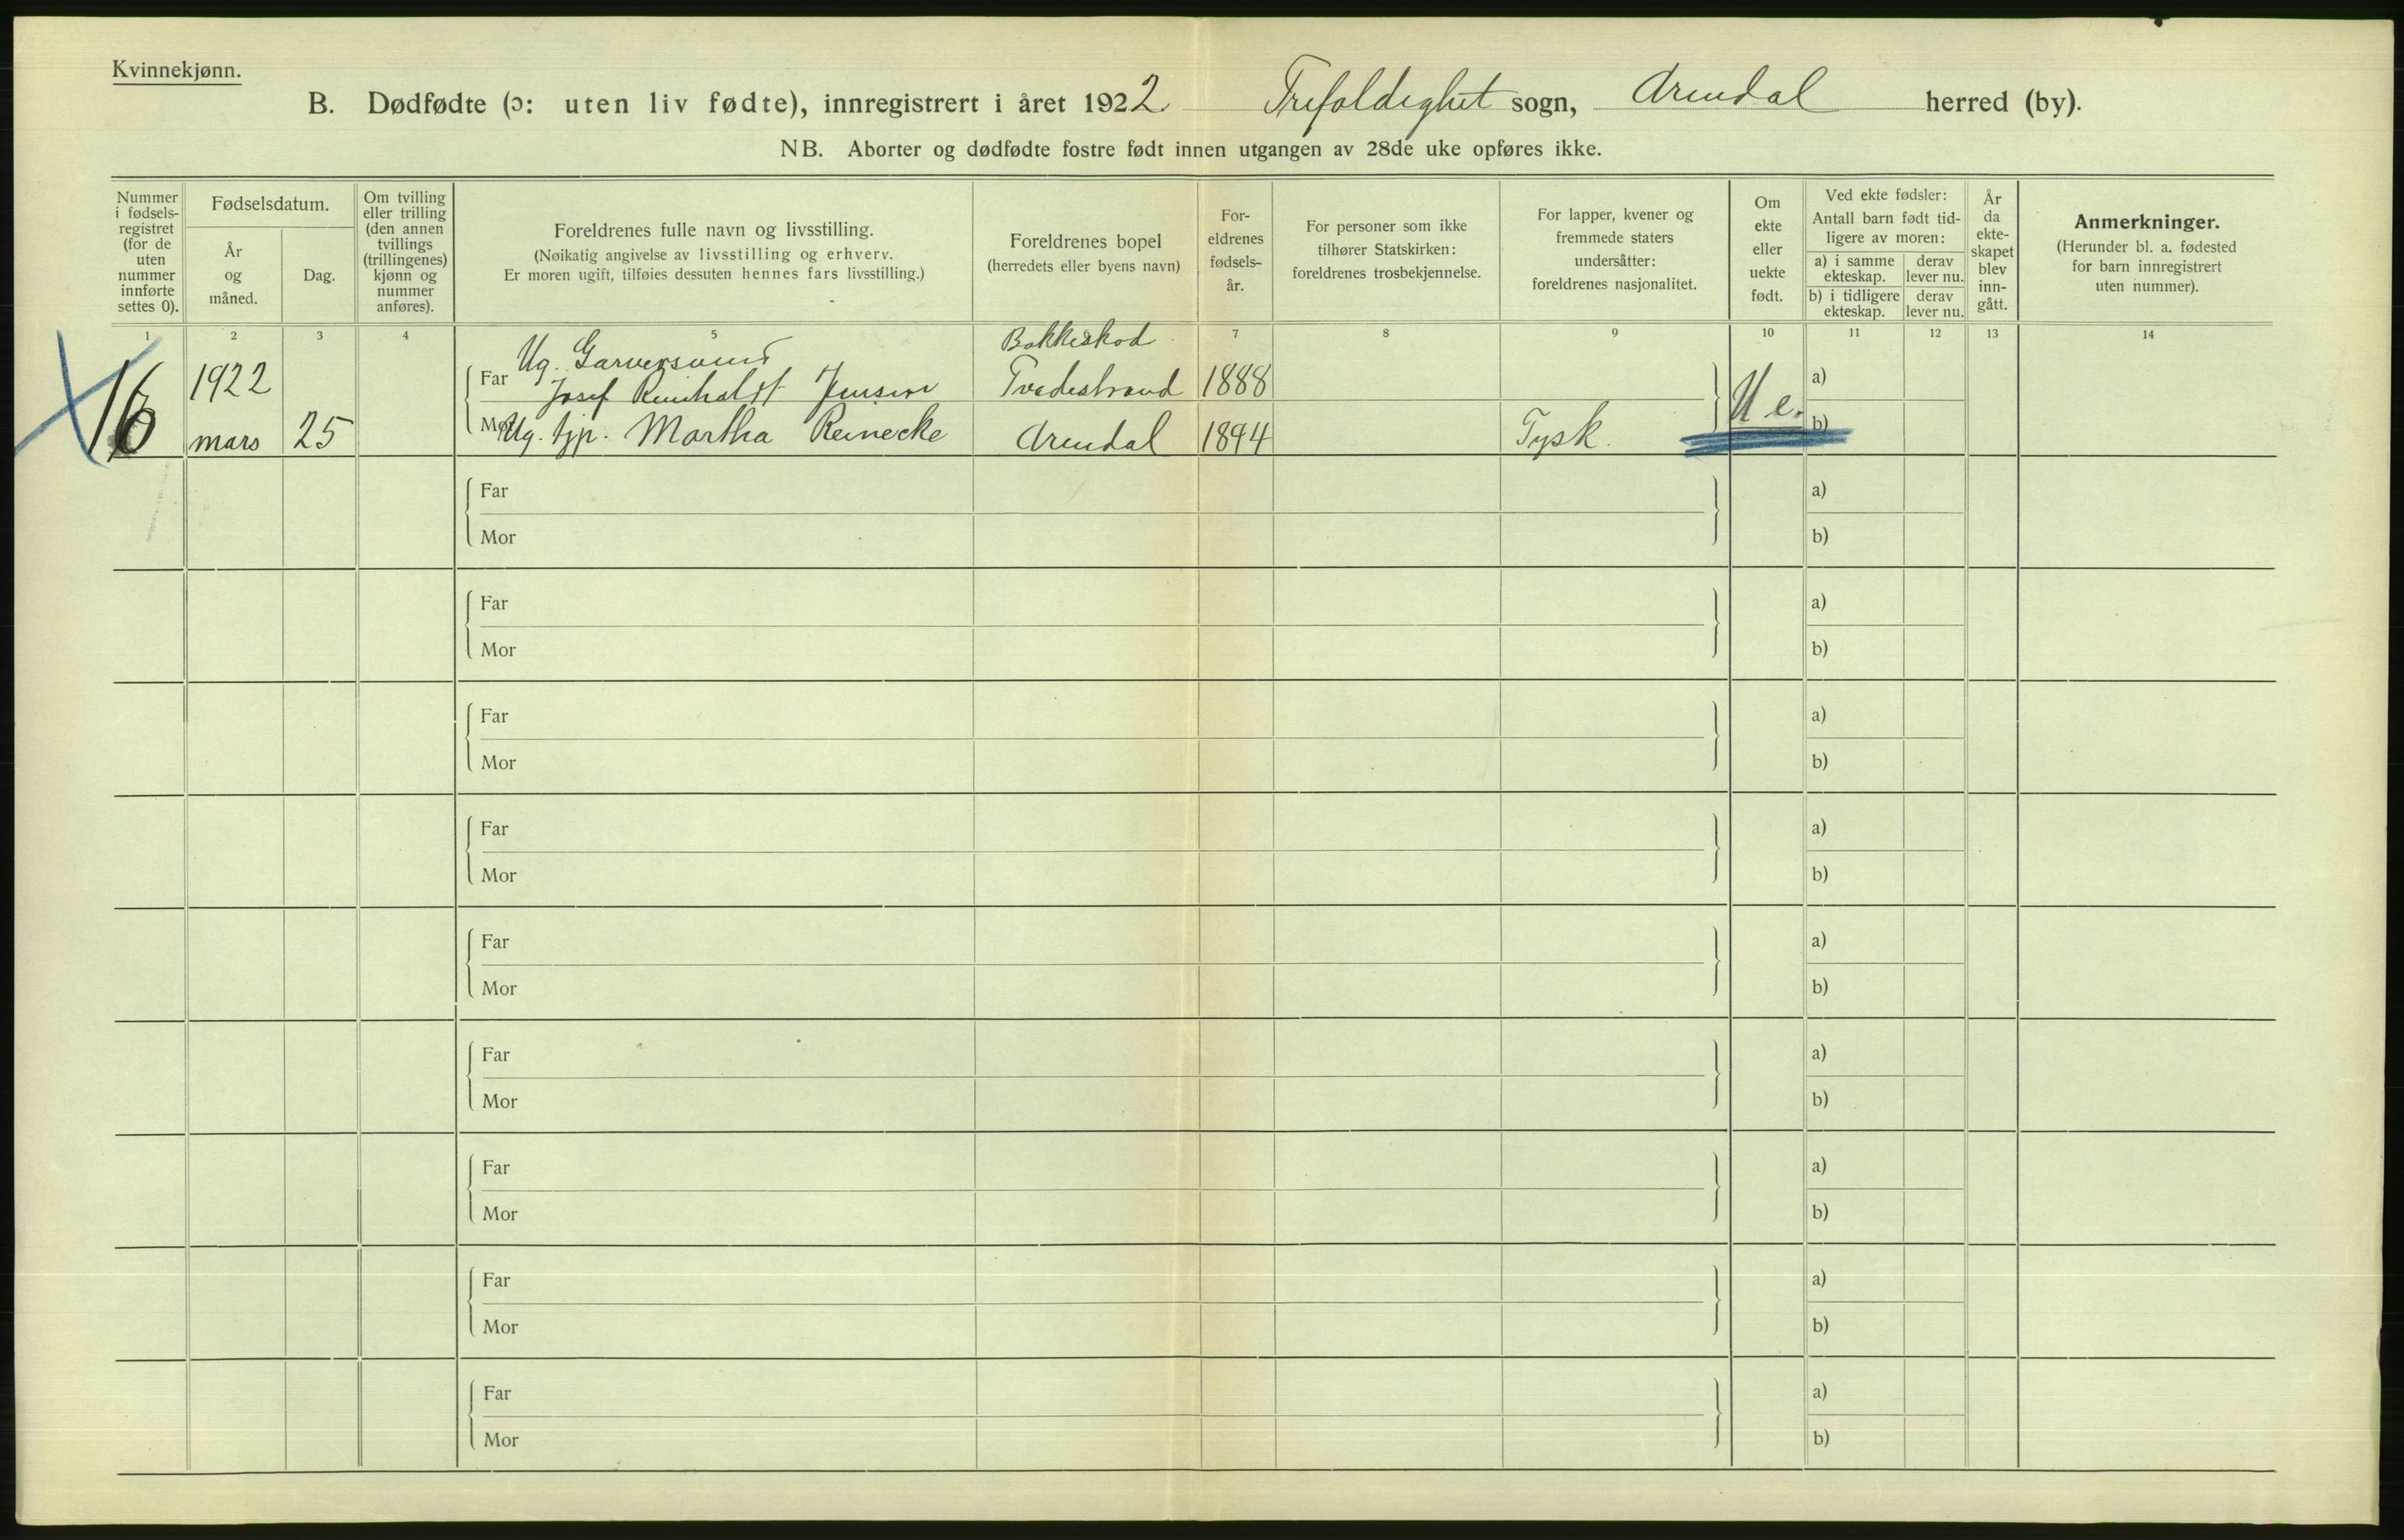 Kvinnekjønn.
B. Dødfødte (ɔ: uten liv fødte), innregistrert i året 1922 Trefoldighet sogn, Arendal herred (by).
NB. Aborter og dødfødte fostre født innen utgangen av 28de uke opføres ikke.
Nummer i fødsels-registret (for de uten nummer innførte settes 0).
Fødselsdatum.
År og måned.
Dag.
Om tvilling eller trilling (den annen tvillings (trillingenes) kjønn og nummer anføres).
Foreldrenes fulle navn og livsstilling.
(Nøikatig angivelse av livsstilling og erhverv.
Er moren ugift, tilføies dessuten hennes fars livsstilling.)
Foreldrenes bopel
(herredets eller byens navn)
For-eldrenes fødsels-år.
For personer som ikke tilhører Statskirken: foreldrenes trosbekjennelse.
For lapper, kvener og fremmede staters undersåtter: foreldrenes nasjonalitet.
Om ekte eller uekte født.
Ved ekte fødsler:
Antall barn født tid-ligere av moren:
a) i samme ekteskap.
derav lever nu.
b) i tidligere ekteskap.
derav lever nu.
År da ekte-skapet blev inn-gått.
Anmerkninger.
(Herunder bl. a. fødested for barn innregistrert uten nummer).
1 2 3 4 5 7 8 9 10 11 12 13 14
16 1922 mars 25
Far Ug. Garversvend Josef Reinholdt Jensen Tvedestrand 1888 a)
Mor Ug. tjp. Martha Reinecke Arendal 1894 Tysk. U e. b)
Far a)
Mor b)
Far a)
Mor b)
Far a)
Mor b)
Far a)
Mor b)
Far a)
Mor b)
Far a)
Mor b)
Far a)
Mor b)
Far a)
Mor b)
Far a)
Mor b)